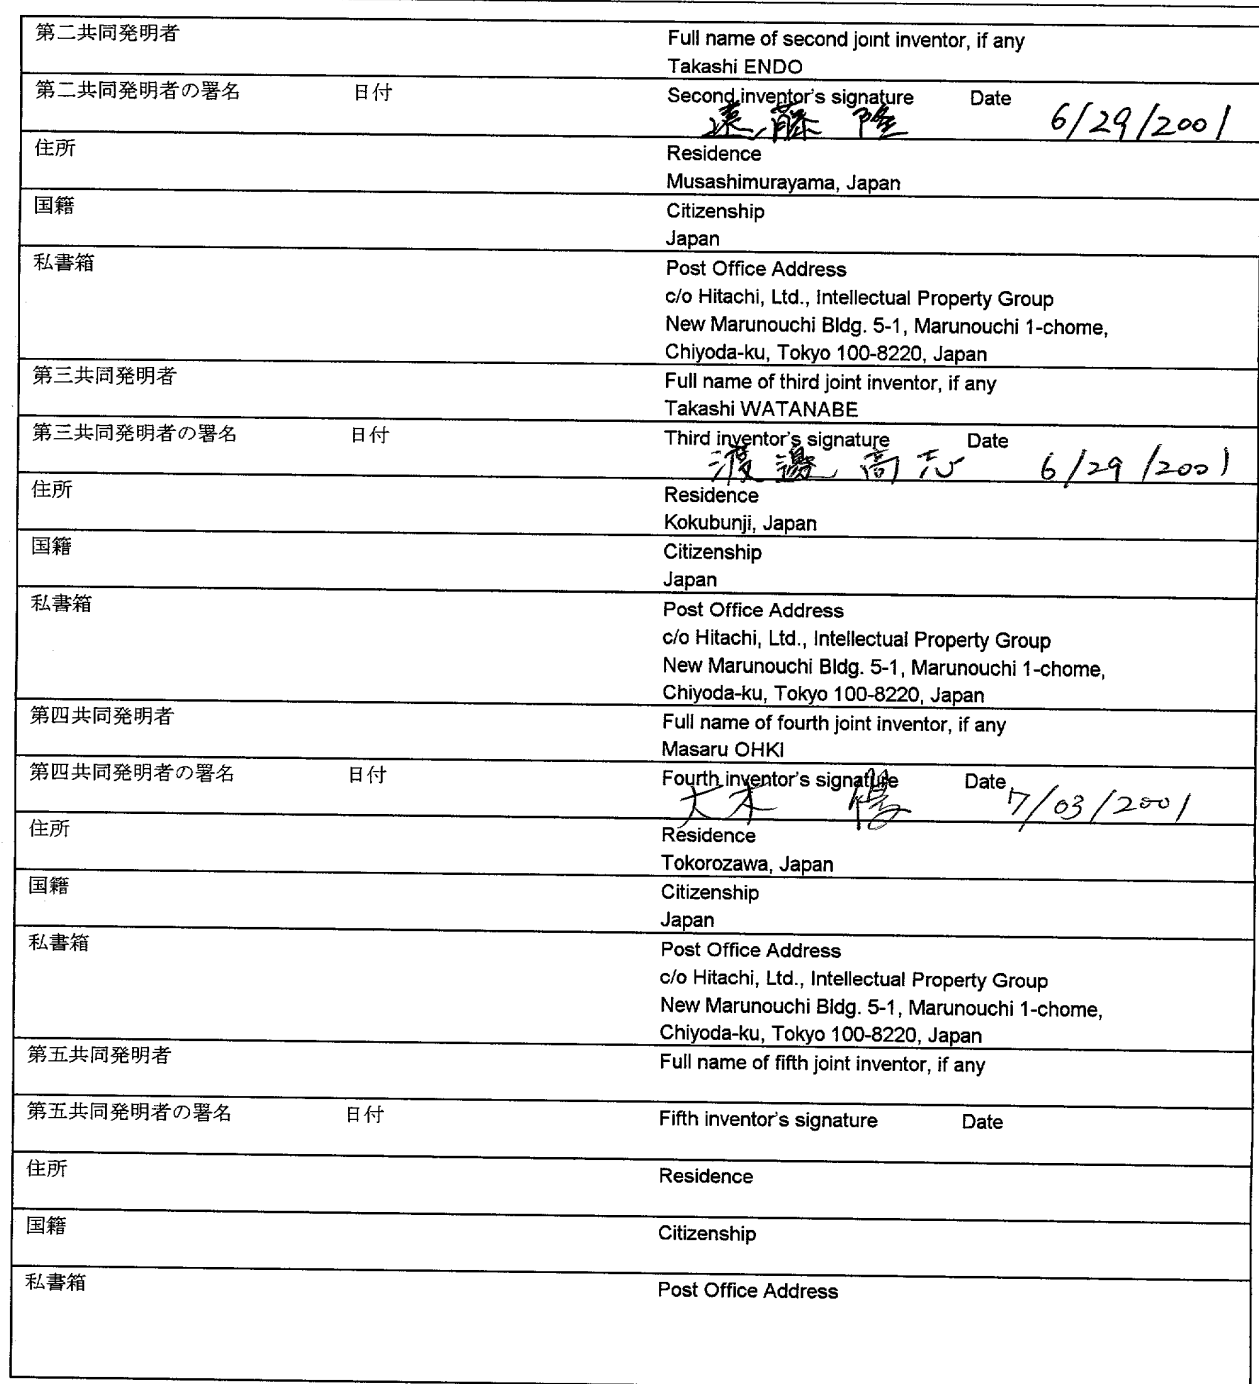 第二共同発明者
Full name of second joint inventor, if any
Takashi ENDO
第二共同発明者の署名 日付
Second inventor's signature Date
遠藤 隆 6/29/2001
住所
Residence
Musashimurayama, Japan
国籍
Citizenship
Japan
私書箱
Post Office Address
c/o Hitachi, Ltd., Intellectual Property Group
New Marunouchi Bldg. 5-1, Marunouchi 1-chome,
Chiyoda-ku, Tokyo 100-8220, Japan
第三共同発明者
Full name of third joint inventor, if any
Takashi WATANABE
第三共同発明者の署名 日付
Third inventor's signature Date
渡邊 高志 6/29/2001
住所
Residence
Kokubunji, Japan
国籍
Citizenship
Japan
私書箱
Post Office Address
c/o Hitachi, Ltd., Intellectual Property Group
New Marunouchi Bldg. 5-1, Marunouchi 1-chome,
Chiyoda-ku, Tokyo 100-8220, Japan
第四共同発明者
Full name of fourth joint inventor, if any
Masaru OHKI
第四共同発明者の署名 日付
Fourth inventor's signature Date
大木 優 7/03/2001
住所
Residence
Tokorozawa, Japan
国籍
Citizenship
Japan
私書箱
Post Office Address
c/o Hitachi, Ltd., Intellectual Property Group
New Marunouchi Bldg. 5-1, Marunouchi 1-chome,
Chiyoda-ku, Tokyo 100-8220, Japan
第五共同発明者
Full name of fifth joint inventor, if any
第五共同発明者の署名 日付
Fifth inventor's signature Date
住所
Residence
国籍
Citizenship
私書箱
Post Office Address